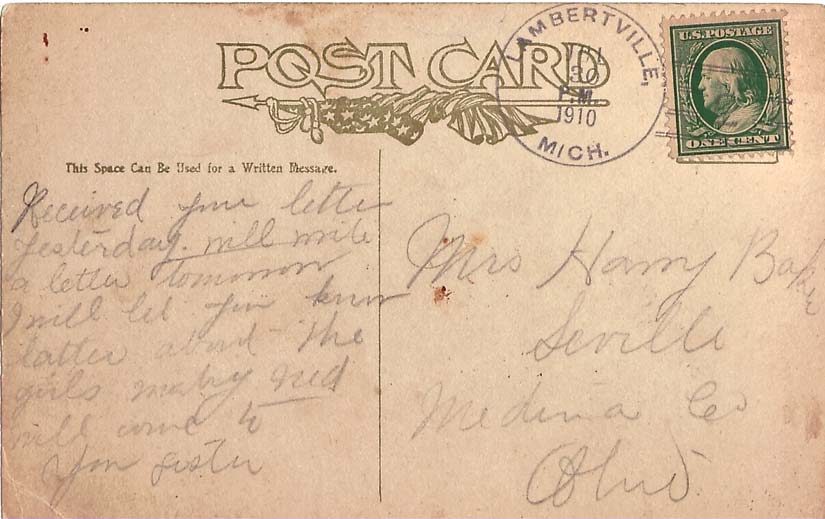 POST CARD
LAMBERTVILLE,
30
P.M.
1910
MICH.
U.S. POSTAGE
ONE CENT
This Space Can Be Used for a Written Message.
Received your letter
yesterday. will write
a letter tomorrow
I will let you know
latter about the
girls maby Ned
will come to
Your sister
Mrs Harry Baker
Seville
Medina Co
Ohio